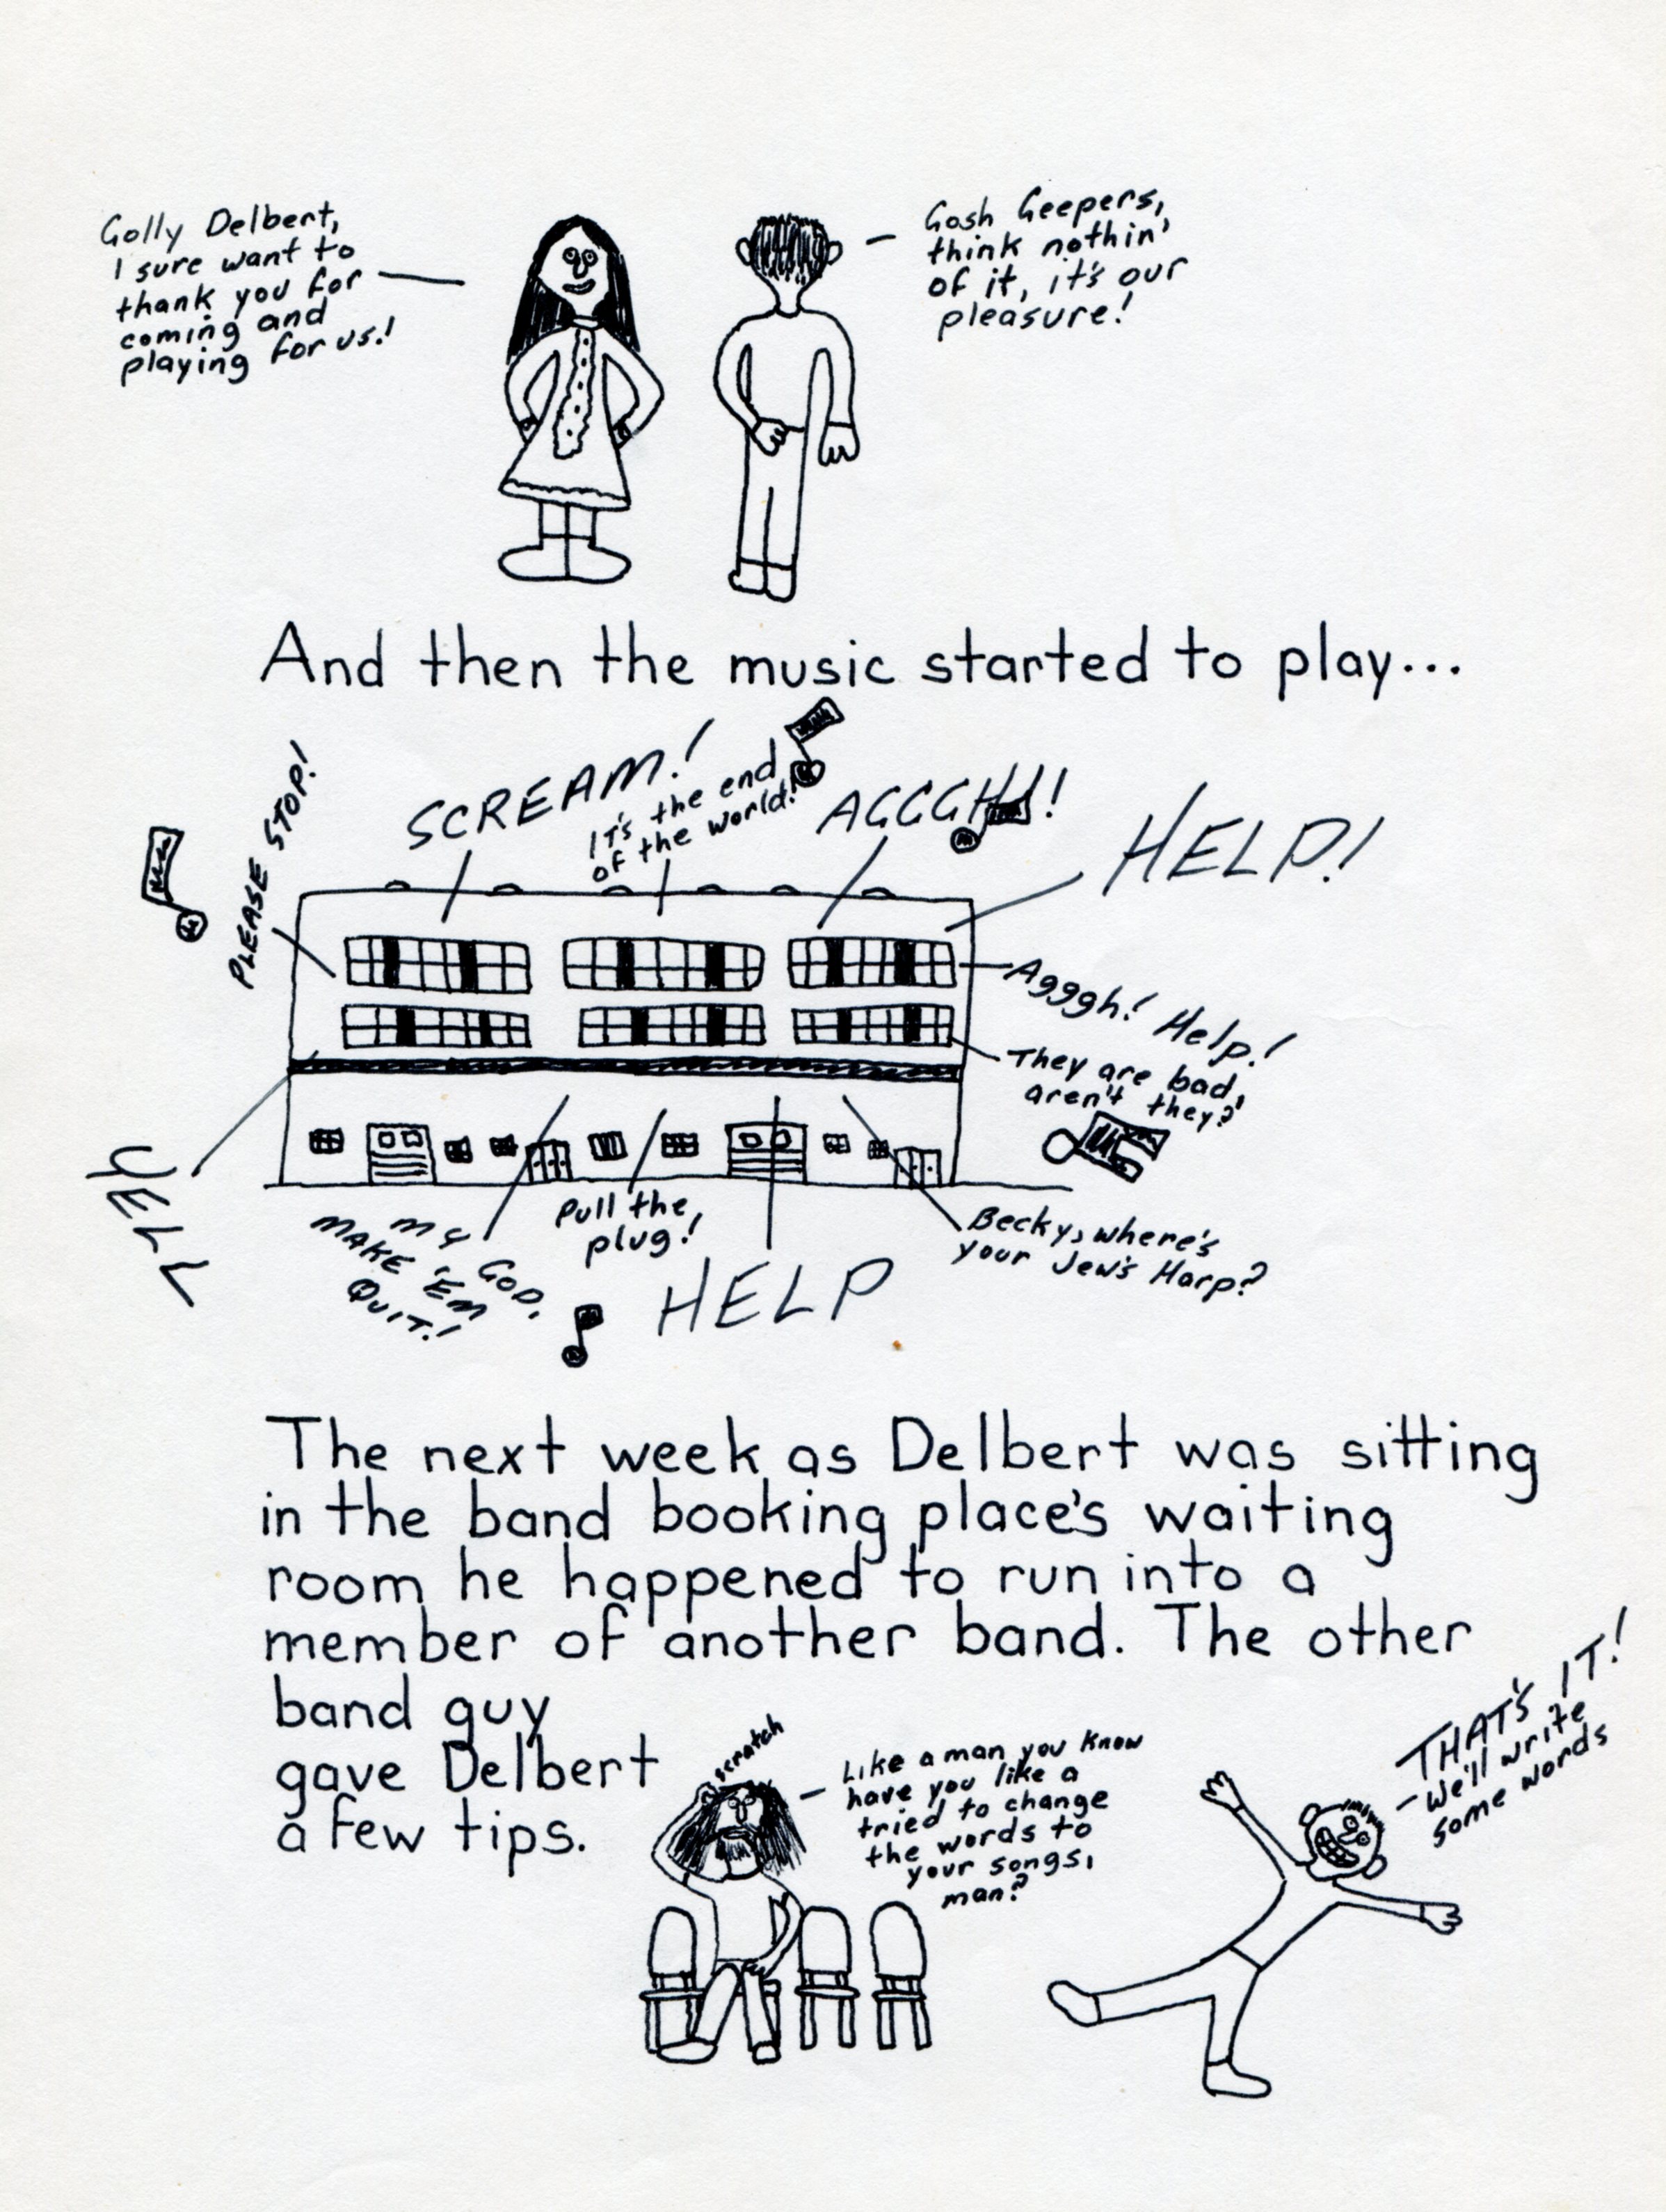 Golly Delbert,
I sure want to
thank you for
coming and
playing for us!
Gosh Geepers,
think nothin'
of it, it's our
pleasure!
And then the music started to play...
PLEASE STOP!
SCREAM!
IT'S the end
of the world!
AGGGHH!
HELP!
Agggh! Help!
They are bad,
aren't they?
YELL
MY GOD,
MAKE 'EM
QUIT!
Pull the
plug!
HELP
Becky, where's
your Jew's Harp?
The next week as Delbert was sitting
in the band booking place's waiting
room he happened to run into a
member of another band. The other
band guy
gave Delbert
a few tips.
scratch
Like a man you know
have you like a
tried to change
the words to
your songs,
man?
THAT'S IT!
We'll write
some words